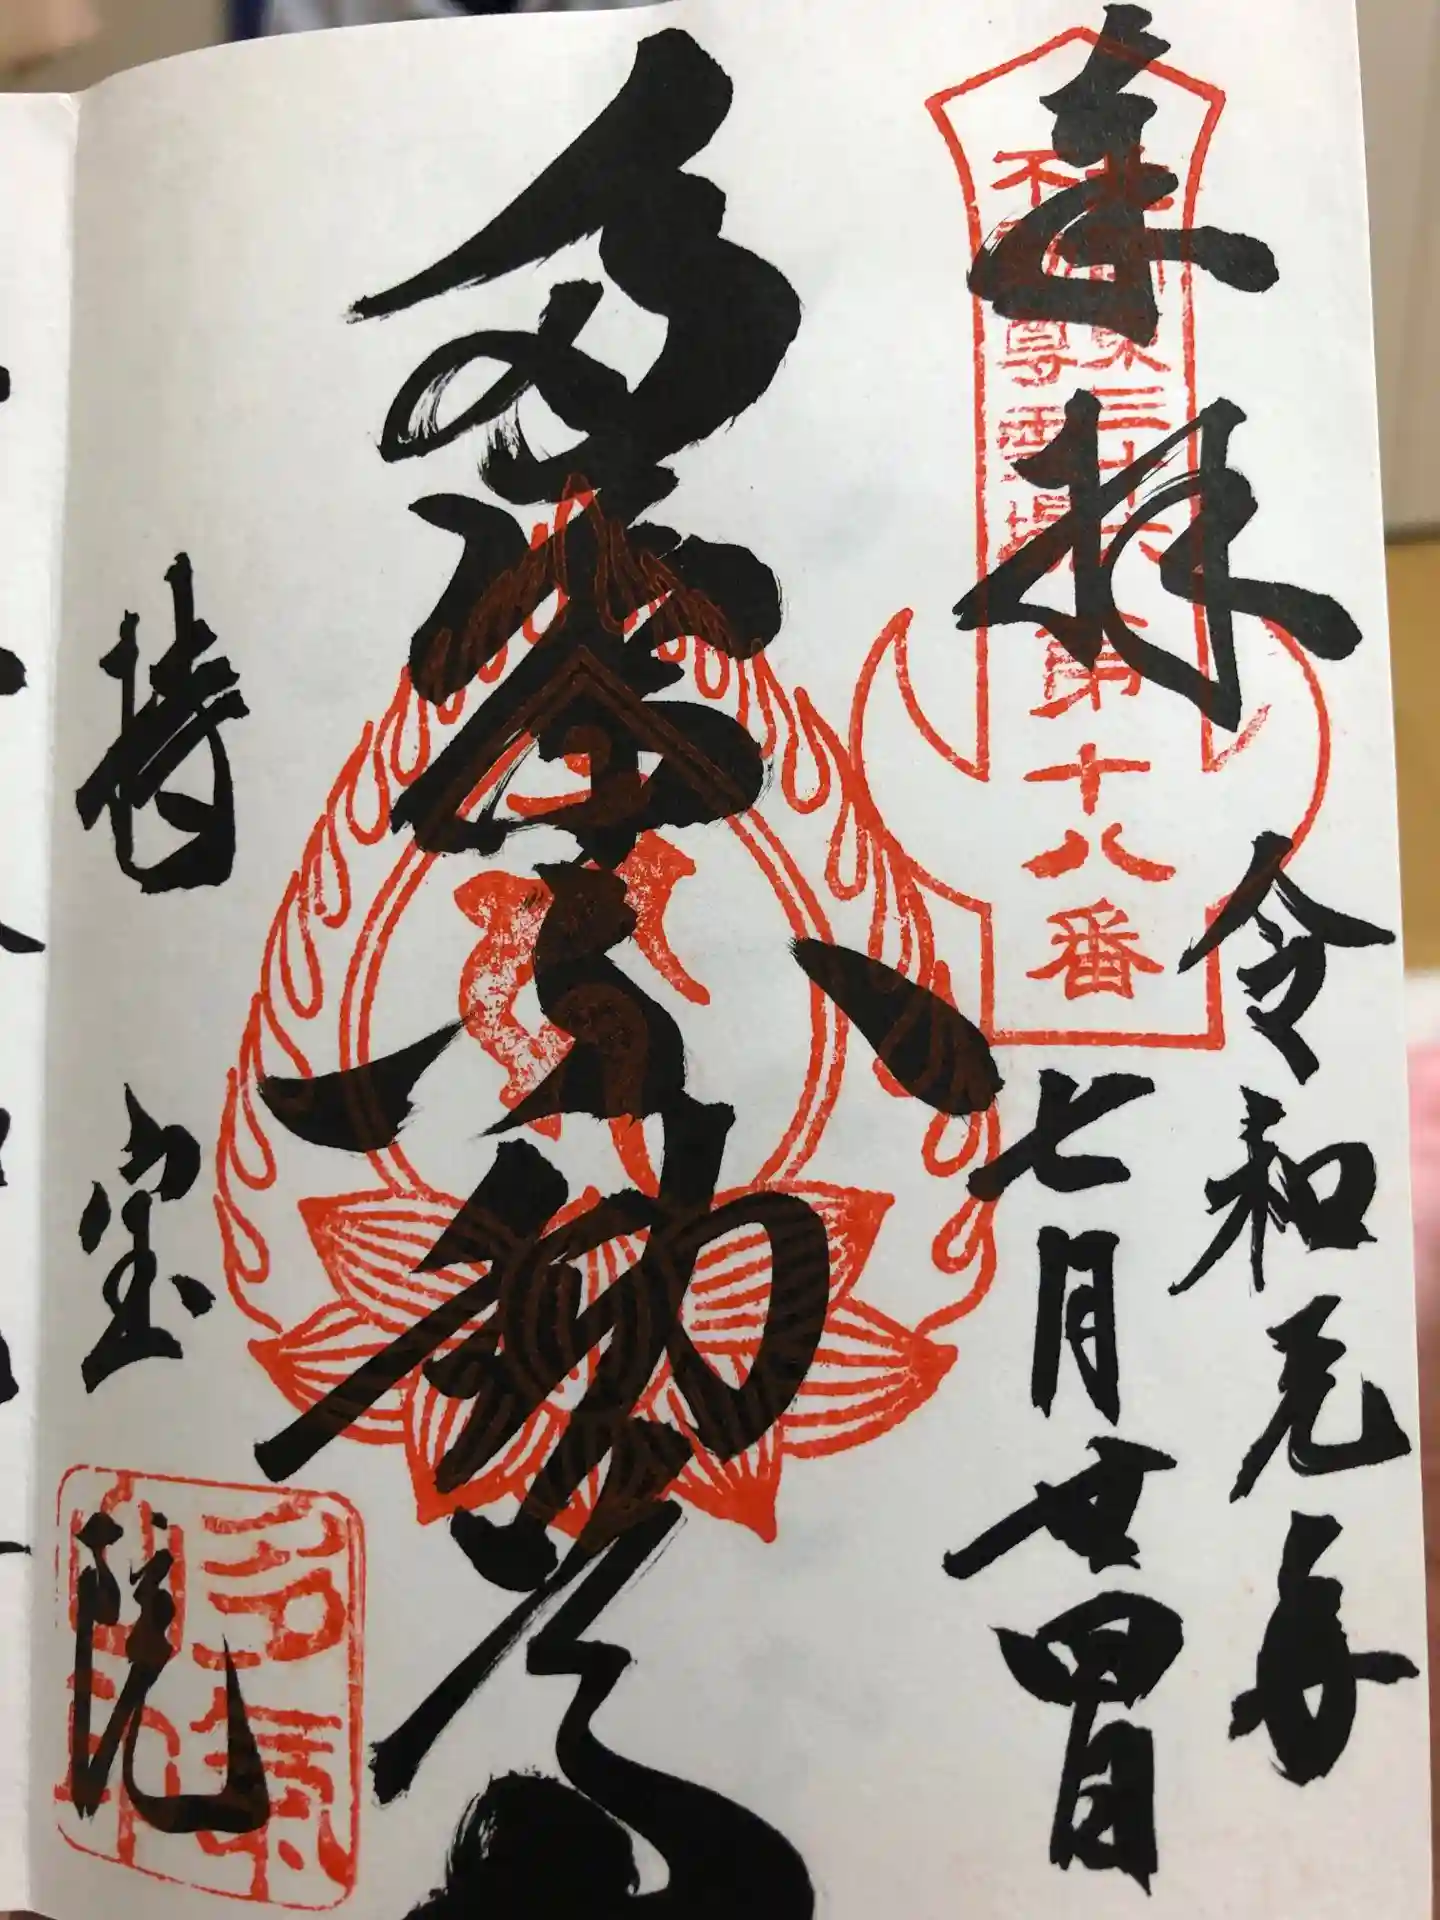 奉拝
北関東三十六
不動尊霊場
第十八番
令和元年
七月廿四日
多気不動尊
持宝院